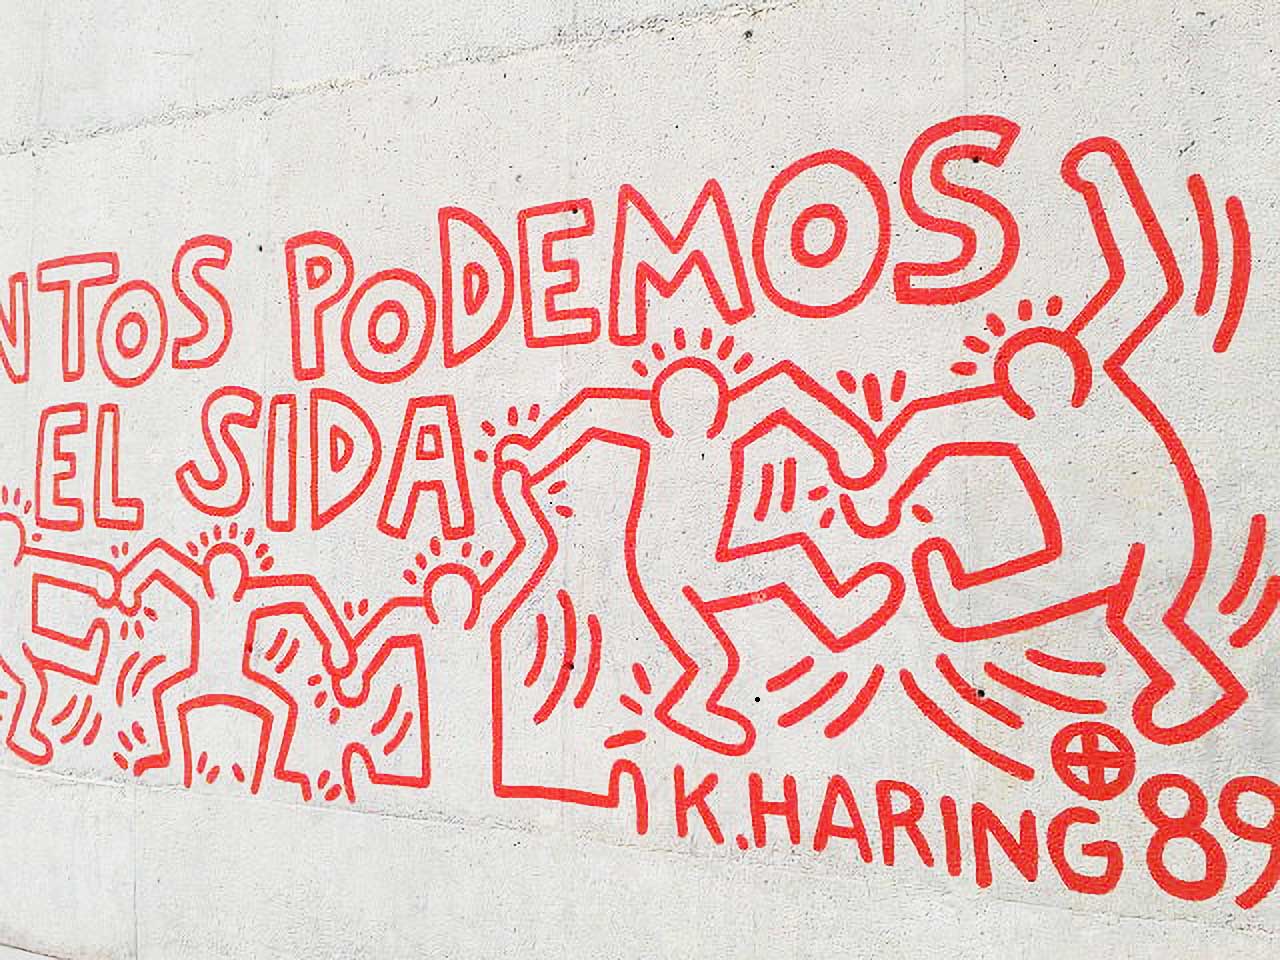 NTOS PODEMOS
EL SIDA
K.HARING ⊕ 89